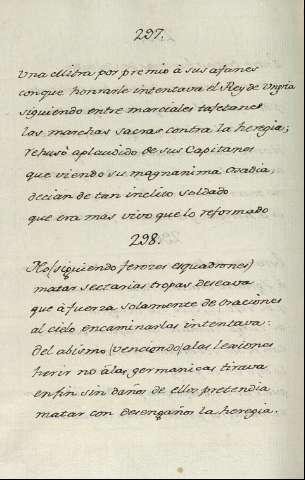 297.
Una Mitra por premio â sus afanes
con que honrarle intentava el Rey de Ungria
siguiendo entre marciales tafetanes
las marchas sacras contra la heregia;
rehusò aplaudido de sus Capitanes
que viendo su magnanima Osadia,
decian de tan inclito soldado
que era mas vivo que lo reformado
298.
No (siguiendo feroces esquadrones)
matar sectarias tropas deseava
que â fuerza solamente de Oraciones
al cielo encaminarlas intentava:
del abismo (venciendo) a las legiones
herir no â las germanicas tirava
enfin sin daños de ellos pretendia
matar con desengaños la heregia.